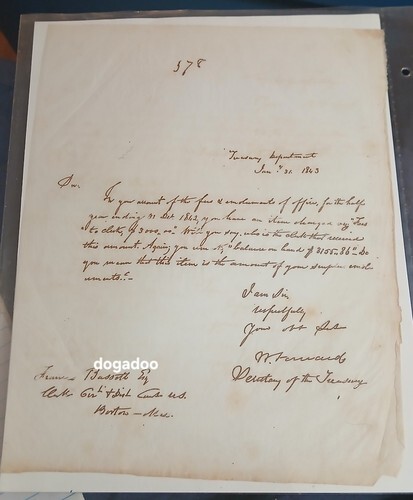 378
Treasury Department
Jany. 31. 1843
Sir.
In your account of the fees & emoluments of office, for the half
year ending 31 Dec 1842, you have an item charged viz "Fees
"to clerk, $3000.00" Will you say, who is the clerk that received
this amount. Again, you say "balance on hand $3155.36" Do
you mean that this item is the amount of your surplus emol-
uments?-
I am Sir
respectfully
Your obt Svt
W. Forward
Secretary of the Treasury
dogadoo
Francis Bassett Esq
Clerk Cirt & Dist Courts U.S.
Boston - Mas.